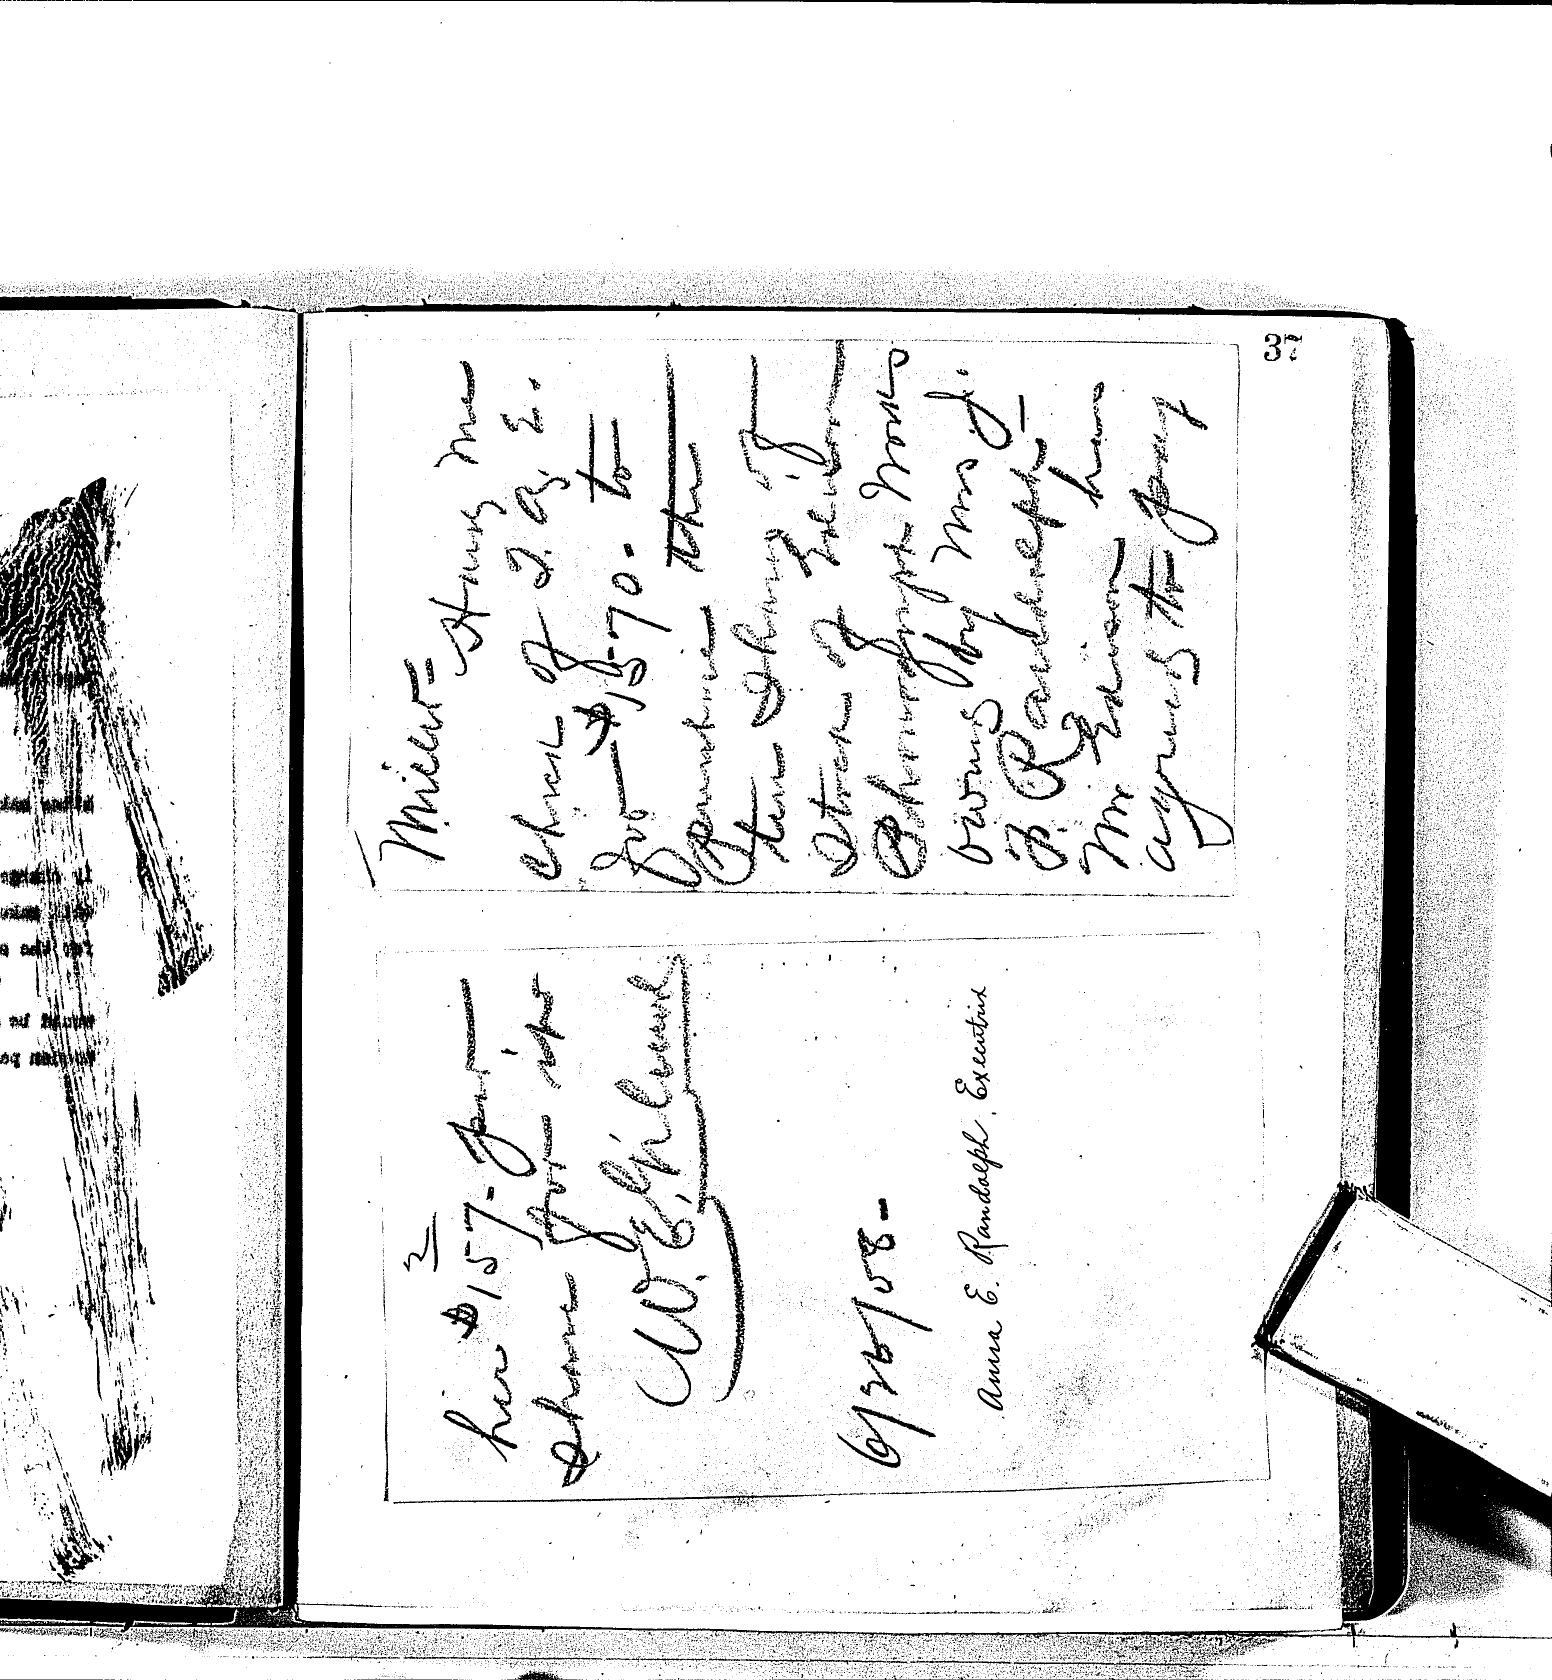 37
Miller=
Hang me
check of T. A. E.
for $1570. to
purchase the
ten shares of
Stock of Edison
Phonograph Works
owned by Mrs J.
F. Randolph—
Mr Edison has
agreed to pay
2
her $157- per
share for it
W. E. Gilmore
6/26/08-
Anna E. Randolph, Executrix